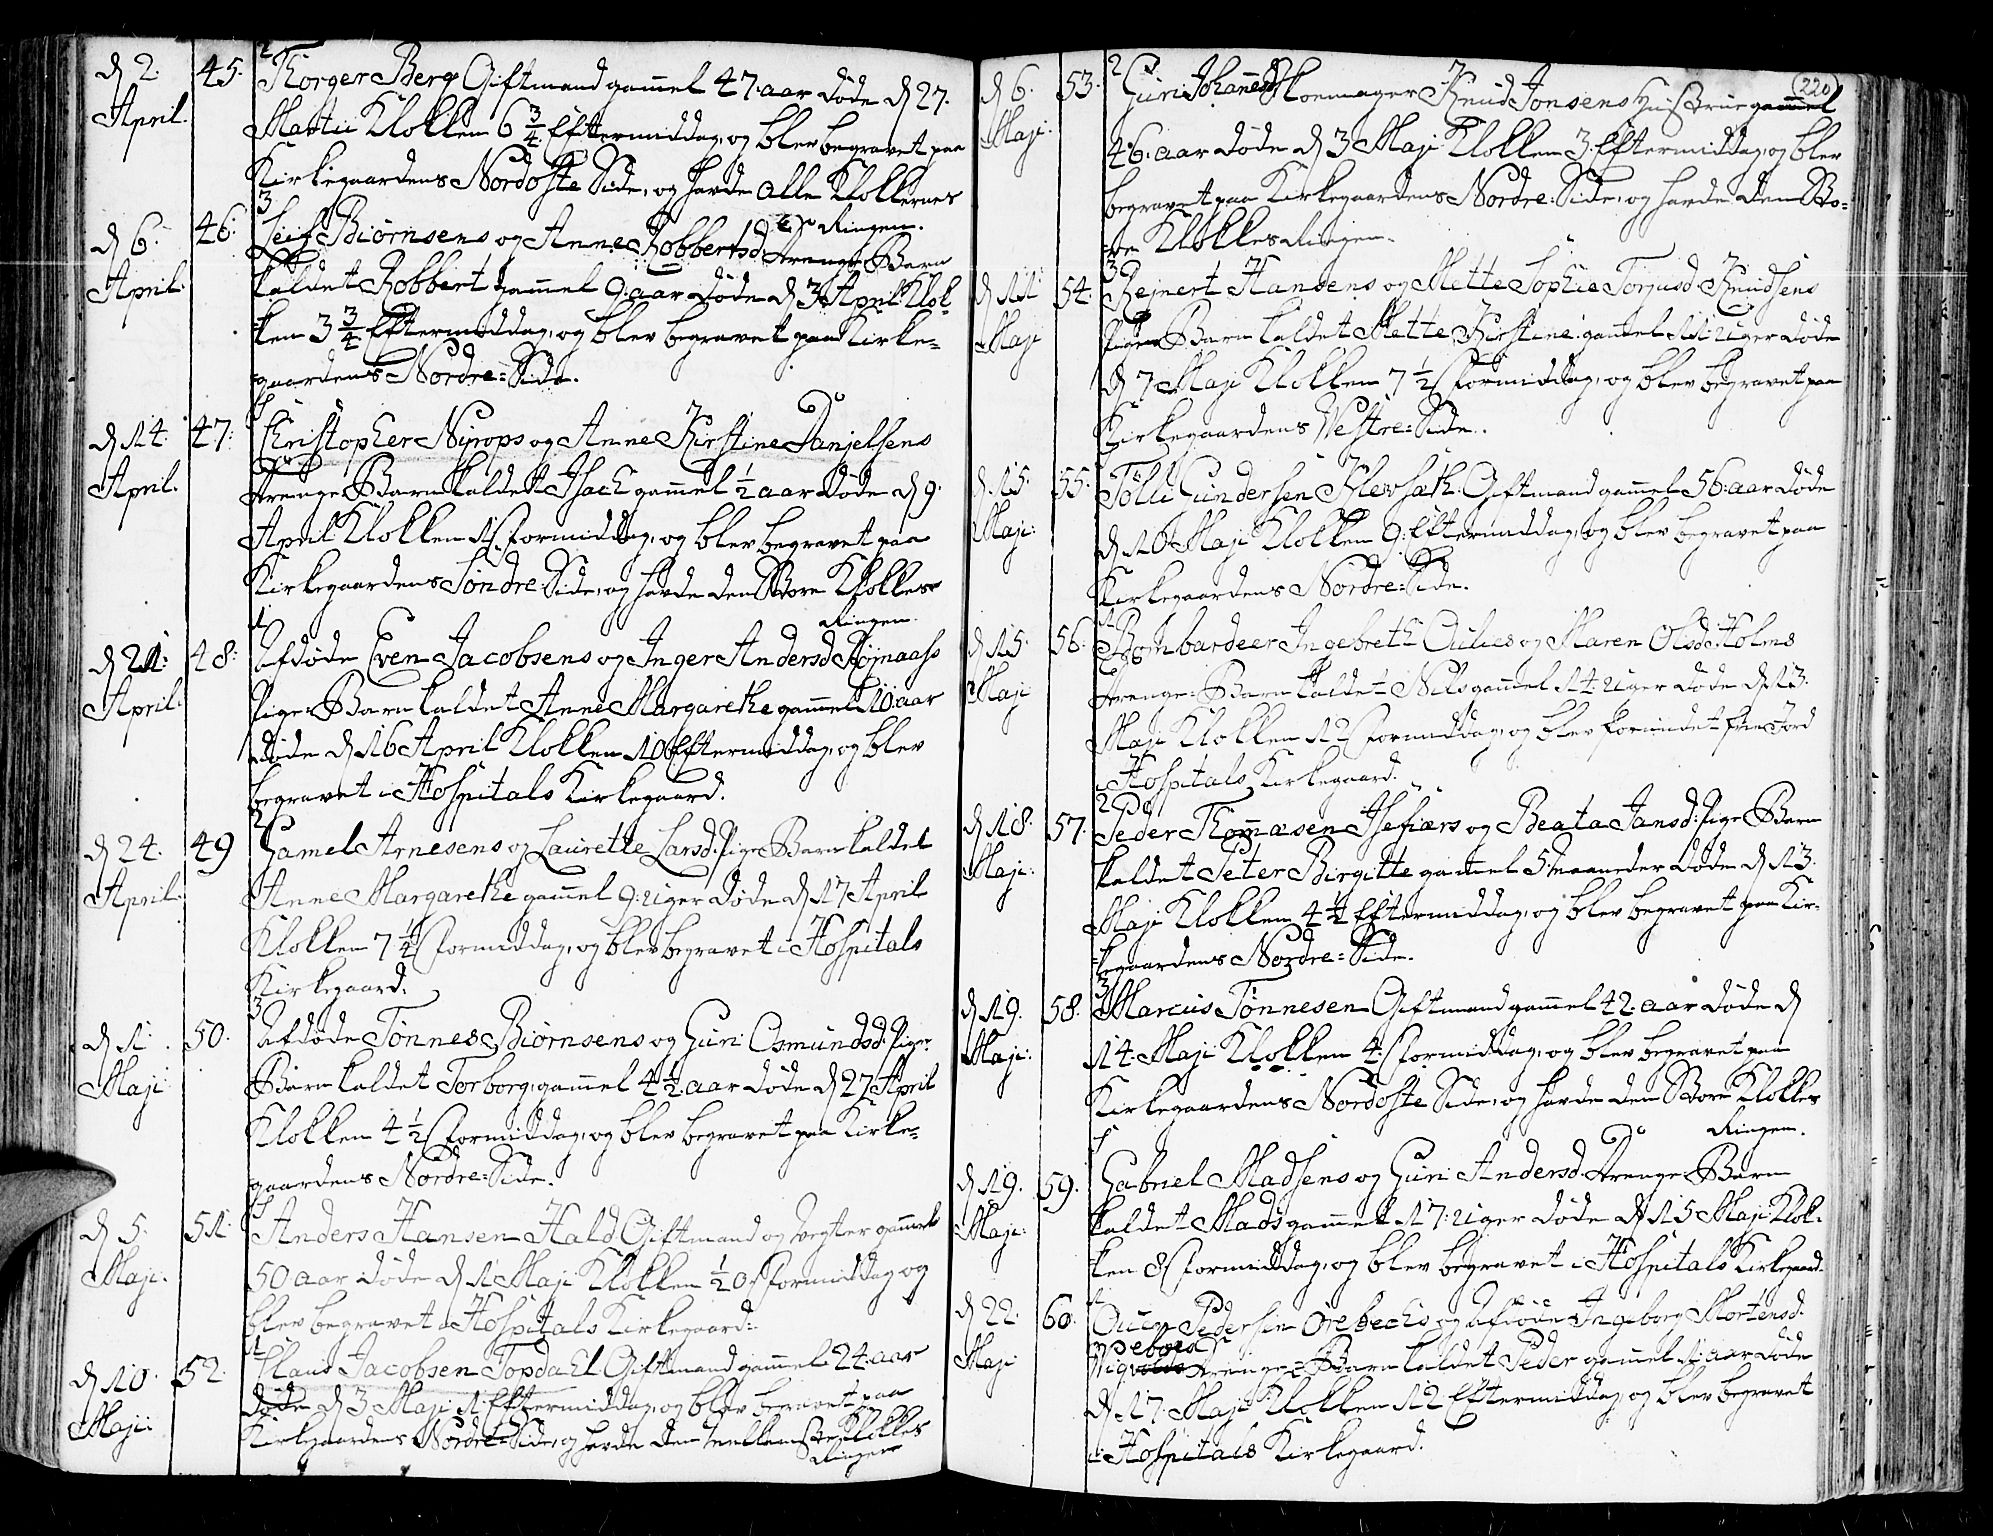 d 2. April. 45. Thorger Berg Giftmand gamel 47 aar døde d 27.
Martii Klokken 6 3/4 Eftermiddag, og blev begravet paa
Kirkegaardens Nordoste Side, og havde alle Klokkernes
Ringen.
d 6. April. 46. Leif Biørnsens og Anne Robbertsd. drenge Barn
kaldet Robbert gamel 9 aar døde d 3 April Klok
ken 3 3/4 Eftermiddag, og blev begravet paa Kirke=
gaardens Nordre=Side.
d 14. April. 47. Christopher Nyrops og Anne Kirstine Danjelsens
drenge Barn kaldet Isach gamel 1/2 aar døde d 9.
April Klokken 1 Formiddag, og blev begravet paa
Kirkegaardens Søndre Side, og havde den Store Klokkes
Ringen.
d 21. April. 48. Afdøde Even Jacobsens og Inger Andersd.
Pige Barn kaldet Anne Margarethe gamel 10 aar
døde d 16 April Klokken 10 Eftermiddag, og blev
begravet i Hospitals Kirkegaard.
d 24. April. 49 Gamel Arnesens og Laurette Larsd. Pige Barn kaldet
Anne Margarethe gamel 9. uger døde d 17 April
Klokken 7 1/4 Formiddag, og blev begravet i Hospitals
Kirkegaard.
d 1. Maji 50. Afdøde Tønnes Biørnsens og Guri Osmundsd. Pige
Barn kaldet Torborg gamel 4 1/2 aar døde d 27 April
Klokken 4 1/2 Formiddag, og blev begravet paa Kirke=
gaardens Nordre=Side.
d 5. Maji. 51. Anders Hansen Hald Giftmand og Vegter gamel
50 aar døde d 1 Maji Klokken 1/2 Formiddag og
blev begravet i Hospitals Kirkegaard.
d 10. Maji 52. Claus Jacobsen Topdahl Giftmand gamel 24 aar
døde d 3 Maji 1 Eftermiddag, og blev begravet paa
Kirkegaardens Nordre=Side, og havde den Mellemste Klokkes
Ringen
(220)
d 6. Maji 53. Guri Johannesd Skoemager Knud Jonsens Hustrue gamel
46 aar døde d 3 Maji Klokken 3. Eftermiddag, og blev
begravet paa Kirkegaardens Nordre=Side, og havde den Sto=
re Klokkes Ringen.
d 11 Maji 54. Rejnert Hansens og Mette Sophie Torjusd. Knudsens
Pige Barn kaldet Mette Kirstine gamel 11 uger døde
d 7 Maji Klokken 7 1/2 Formiddag, og blev begravet paa
Kirkegaardens Vestre=Side.
d. 15. Maji. 55. Tølli Gundersen Giftmand gamel 56. aar døde
d 10 Maji Klokken 9. Eftermiddag, og blev begravet paa
Kirkegaardens Nordre=Side.
d 15. Maji 56. Bombardeer Ingebreth og Maren Olsd: Holms
drenge=Barn kaldet Nils gamel 14. uger døde d 13.
Maji Klokken 12 Formiddag, og blev forundet frie Jord
i Hospitals Kirkegaard.
d 18. Maji. 57. Peder Thomæsen og Beata Jansd. Pige Barn
kaldet Peter Birgitte gamel 5 Maaneder døde d 13.
Maji Klokken 4 1/2 Eftermiddag, og blev begravet paa Kir=
kegaardens Nordre=Side.
d 19. Maji. 58. Marcus Tønnesen Giftmand gamel 42. aar døde d
14. Maji Klokken 4. Formiddag, og blev begravet paa
Kirkegaardens Nordoste Side, og havde den Store Klokkes
Ringen.
d 19. Maji. 59. Gabriel Madsens og Guri Andersd. drenge Barn
kaldet Mads gammel 17. uger døde d 15 Maji Klok=
ken 8 Formiddag, og blev begravet i Hospitals Kirkegaard.
d 22. Maji 60. Ouen Pedersen Orebechs og Afdøde Ingeborg Mortensd.
drenge=Barn kaldet Peder gamel 1 aar døde
d 17. Maji Klokken 12 Eftermiddag, og blev begravet
i Hospitals Kirkegaard.